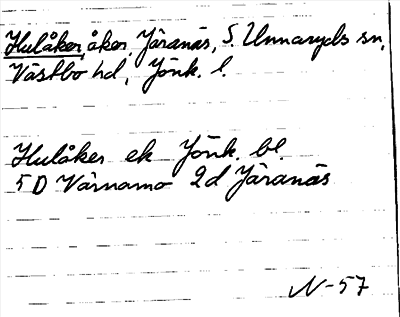 Hulåker, åker, Järanäs, S. Unnaryds sn,
Västbo hd, Jönk. l.
Hulåker ek Jönk. bl.
5D Värnamo 2d Järanäs
N-57